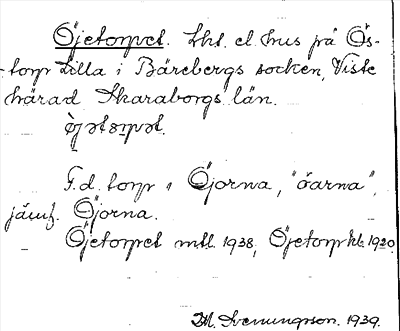 Öjetorpet. Lht. el. hus på Ös-
torp Lilla i Bärebergs socken, Viste
härad Skaraborgs län.
F.d. torp i Öjorna, "öarna",
jämf. Öjorna.
Öjetorpet mtl 1938, Öjetorp hk 1930.
M. Svenungson. 1939.